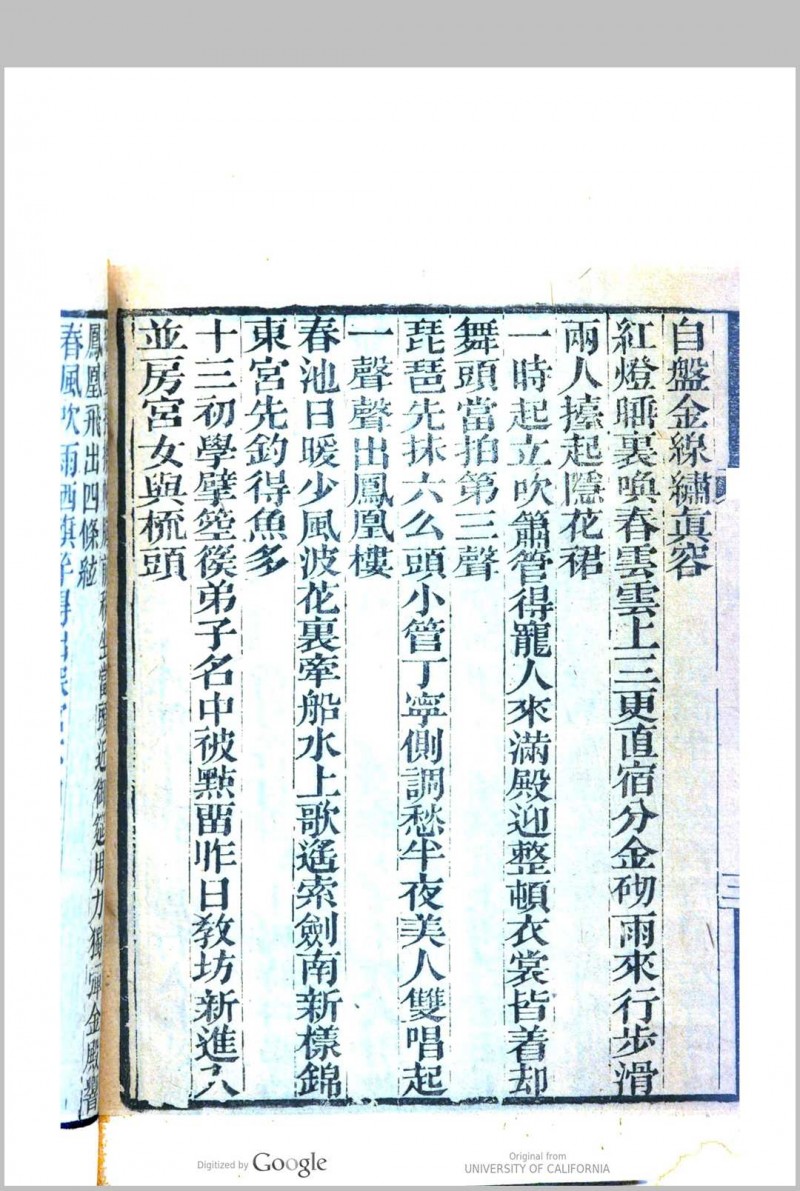 自盤金線繡真容
紅燈睡裏喚春雲雲上三更直宿分金砌雨來行步滑
兩人擡起隱花裙
一時起立吹簫管得寵人來滿殿迎整頓衣裳皆着却
舞頭當拍第三聲
琵琶先抹六么頭小管丁寧側調愁半夜美人雙唱起
一聲聲出鳳凰樓
春池日暖少風波花裏牽船水上歌遙索劍南新樣錦
東宮先釣得魚多
十三初學擘箜篌弟子名中被點畱昨日敎坊新進入
並房宮女與梳頭
鳳凰飛出四條絃
春風吹雨洒旗竿得出
三
Digitized by Google
Original from
UNIVERSITY OF CALIFORNIA